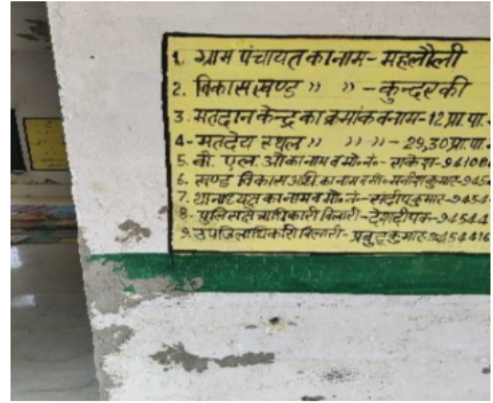 1. ग्राम पंचायत का नाम- महलौली
2. विकास खण्ड ,, ,, - कुन्दरकी
3. मतदान केन्द्र का क्रमांक व नाम- 12 प्रा. पा.
4- मतदेय स्थल ,, ,, ,, - 29,30 प्रा. पा.
5. बी. एल. ओ का नाम व मो. नं.- राकेश- 941080
6. खण्ड विकास अधि. का नाम व मो.- मनीश कुमार- 945
7. थानाध्यक्ष का नाम व मो. नं- संदीप कुमार- 9454
8. पुलिस क्षेत्राधिकारी बिलारी- देशदीपक- 94544
9. उपजिलाधिकारी बिलारी- प्रबुद्ध कुमार- 9454416